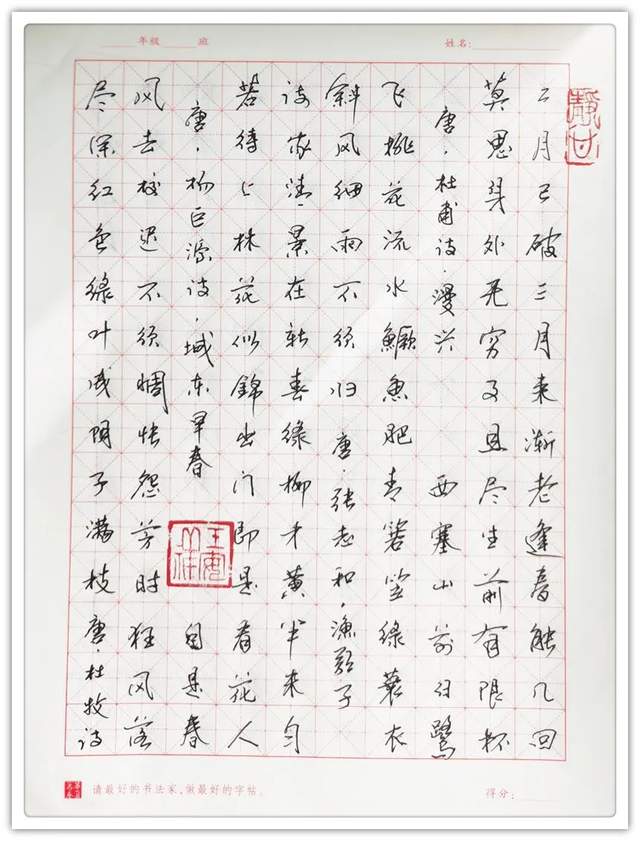 年级 班
姓名:
二月已破三月来渐老逢春能几回
莫思身外无穷事且尽生前有限杯
唐·杜甫诗·漫兴 西塞山前白鹭
飞桃花流水鳜鱼肥青箬笠绿蓑衣
斜风细雨不须归 唐·张志和·渔歌子
诗家清景在新春绿柳才黄半未匀
若待上林花似錦出门即是看花人
唐·杨巨源诗·城东早春 自是春
风去校迟不须惆怅怨芳时狂风落
尽深红色绿叶成阴子满枝唐·杜牧诗
请最好的书法家,做最好的字帖。
得分: